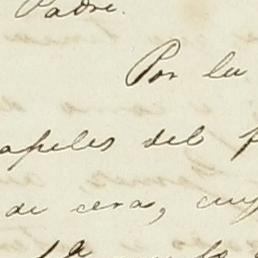 Padre.
Por la
apeles del
de cera, cuy